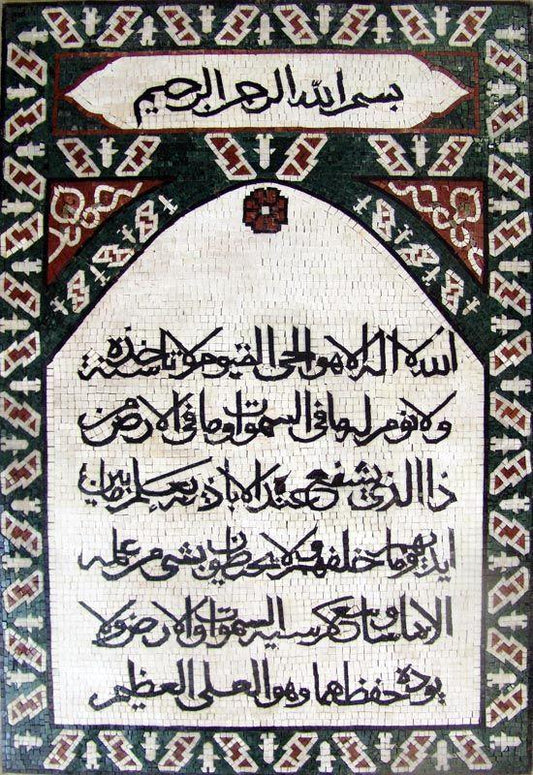 بسم الله الرحمن الرحيم
الله لا اله الا هو الحي القيوم لا تاخذه سنة
ولا نوم له ما في السموات وما في الارض من
ذا الذي يشفع عنده الا باذنه يعلم ما بين
ايديهم وما خلفهم ولا يحيطون بشي من علمه
الا بما شا وسع كرسيه السموات والارض ولا
يوده حفظهما وهو العلي العظيم